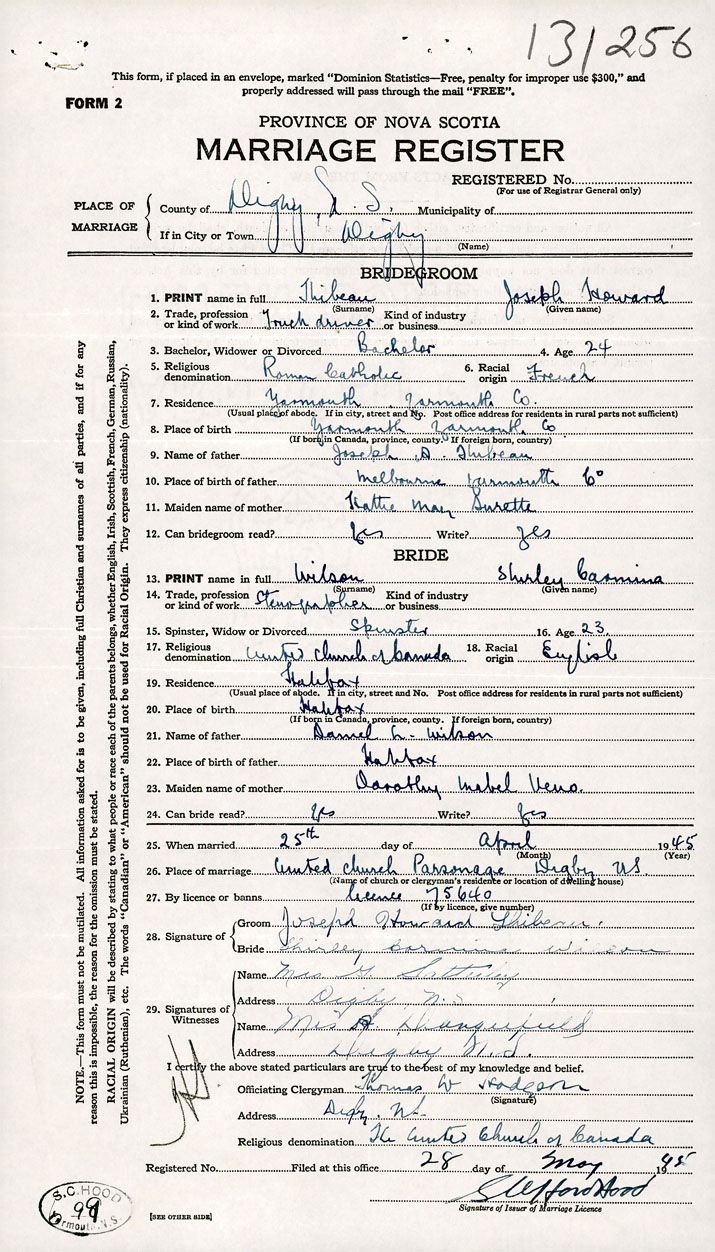 131256
This form, if placed in an envelope, marked "Dominion Statistics—Free, penalty for improper use $300," and
properly addressed will pass through the mail "FREE".
FORM 2
PROVINCE OF NOVA SCOTIA
MARRIAGE REGISTER
REGISTERED No.
(For use of Registrar General only)
PLACE OF MARRIAGE
County of Digby, N. S. Municipality of
If in City or Town Digby
(Name)
BRIDEGROOM
1. PRINT name in full Thibeau Joseph Howard
(Surname) (Given name)
2. Trade, profession or kind of work Truck driver Kind of industry or business
3. Bachelor, Widower or Divorced Bachelor 4. Age 24
5. Religious denomination Roman Catholic 6. Racial origin French
7. Residence Yarmouth Yarmouth Co.
(Usual place of abode. If in city, street and No. Post office address for residents in rural parts not sufficient)
8. Place of birth Yarmouth Yarmouth Co
(If born in Canada, province, county. If foreign born, country)
9. Name of father Joseph A. Thibeau
10. Place of birth of father Melbourne Yarmouth Co
11. Maiden name of mother Kattie May Surette
12. Can bridegroom read? Yes Write? Yes
BRIDE
13. PRINT name in full Wilson Shirley Carmina
(Surname) (Given name)
14. Trade, profession or kind of work Stenographer Kind of industry or business
15. Spinster, Widow or Divorced Spinster 16. Age 23
17. Religious denomination United Church of Canada 18. Racial origin English
19. Residence Halifax
(Usual place of abode. If in city, street and No. Post office address for residents in rural parts not sufficient)
20. Place of birth Halifax
(If born in Canada, province, county. If foreign born, country)
21. Name of father Daniel L. Wilson
22. Place of birth of father Halifax
23. Maiden name of mother Dorothy Mabel Veno.
24. Can bride read? Yes Write? Yes
25. When married 25th day of April 1945
(Month) (Year)
26. Place of marriage United Church Parsonage Digby NS.
(Name of church or clergyman's residence or location of dwelling house)
27. By licence or banns licence 75640
(If by licence, give number)
28. Signature of
Groom Joseph Howard Thibeau.
Bride Shirley Carmina Wilson
29. Signatures of Witnesses
Name Mrs
Address Digby N.S
Name Mrs Dangerfield
Address Digby N.S.
I certify the above stated particulars are true to the best of my knowledge and belief.
Officiating Clergyman Thomas W Hodgson
(Signature)
Address Digby, NS.
Religious denomination The United Church of Canada
Registered No. Filed at this office 28 day of May 1945
S Clifford Hood
Signature of Issuer of Marriage Licence
[SEE OTHER SIDE]
S. C. HOOD
99
Yarmouth, N.S.
NOTE.—This form must not be mutilated. All information asked for is to be given, including full Christian and surnames of all parties, and if for any
reason this is impossible, the reason for the omission must be stated.
RACIAL ORIGIN will be described by stating to what people or race each of the parents belongs, whether English, Irish, Scottish, French, German, Russian,
Ukrainian (Ruthenian), etc. The words "Canadian" or "American" should not be used for Racial Origin. They express citizenship (nationality).